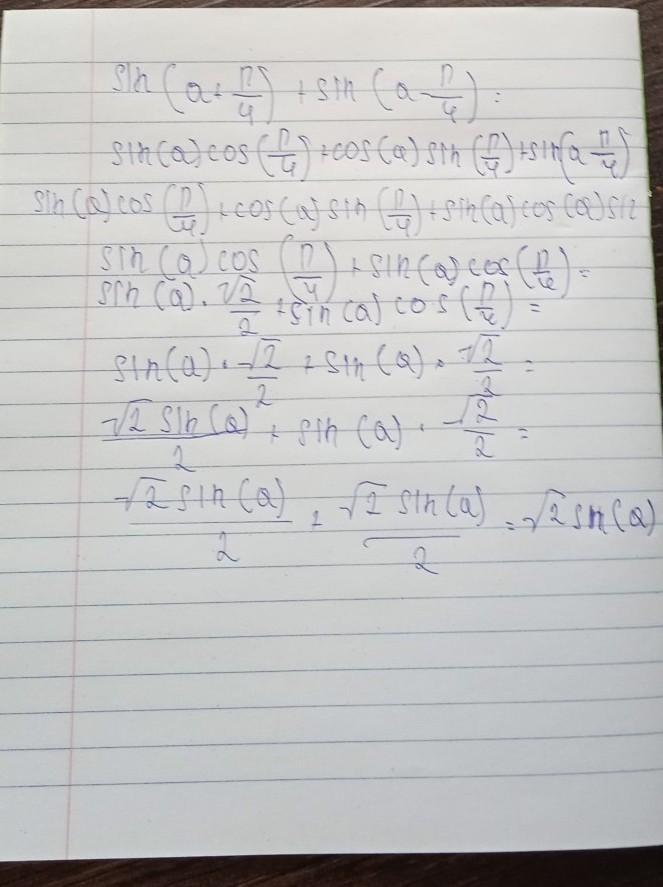 sin(a+π/4)+sin(a-π/4)=
sin(a)cos(π/4)+cos(a)sin(π/4)+sin(a π/4)
sin(a)cos(π/4)+cos(a)sin(π/4)+sin(a)cos(a)sin
sin(a)cos(π/4)+sin(a)cos(π/4)=
sin(a)·√2/2+sin(a)cos(π/4)=
sin(a)·√2/2+sin(a)·√2/2=
√2sin(a)/2+sin(a)·√2/2=
√2sin(a)/2+√2sin(a)/2=√2sin(a)